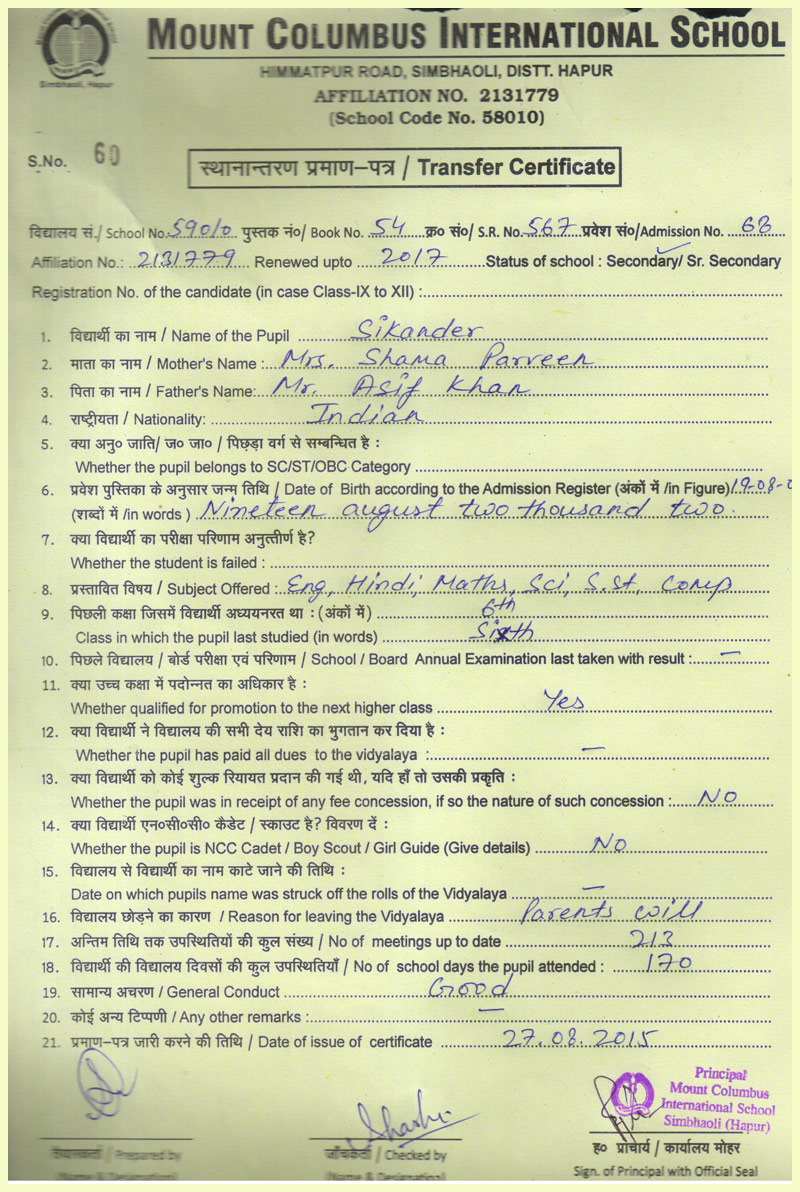 MOUNT COLUMBUS INTERNATIONAL SCHOOL
Simbhaoli, Hapur
HIMMATPUR ROAD, SIMBHAOLI, DISTT. HAPUR
AFFILIATION NO. 2131779
(School Code No. 58010)
S.No. 60
स्थानान्तरण प्रमाण-पत्र / Transfer Certificate
विद्यालय सं./ School No. 59010 पुस्तक नं०/ Book No. 54 क्र० सं०/ S.R. No. 567 प्रवेश सं०/Admission No. 68
Affiliation No.: 2131779 Renewed upto 2017 Status of school : Secondary/ Sr. Secondary
Registration No. of the candidate (in case Class-IX to XII) :
1. विद्यार्थी का नाम / Name of the Pupil Sikander
2. माता का नाम / Mother's Name : Mrs. Shama Parveen
3. पिता का नाम / Father's Name: Mr. Asif Khan
4. राष्ट्रीयता / Nationality: Indian
5. क्या अनु० जाति/ ज० जा० / पिछड़ा वर्ग से सम्बन्धित है :
Whether the pupil belongs to SC/ST/OBC Category
6. प्रवेश पुस्तिका के अनुसार जन्म तिथि / Date of Birth according to the Admission Register (अंकों में /in Figure)/ 19-08-0
(शब्दों में /in words ) Nineteen august two thousand two.
7. क्या विद्यार्थी का परीक्षा परिणाम अनुत्तीर्ण है?
Whether the student is failed :
8. प्रस्तावित विषय / Subject Offered : Eng, Hindi, Maths, Sci, S.st, Comp
9. पिछली कक्षा जिसमें विद्यार्थी अध्ययनरत था : (अंकों में) 6th
Class in which the pupil last studied (in words) Sixth
10. पिछले विद्यालय / बोर्ड परीक्षा एवं परिणाम / School / Board Annual Examination last taken with result : —
11. क्या उच्च कक्षा में पदोन्नत का अधिकार है :
Whether qualified for promotion to the next higher class Yes
12. क्या विद्यार्थी ने विद्यालय की सभी देय राशि का भुगतान कर दिया है :
Whether the pupil has paid all dues to the vidyalaya : —
13. क्या विद्यार्थी को कोई शुल्क रियायत प्रदान की गई थी, यदि हाँ तो उसकी प्रकृति :
Whether the pupil was in receipt of any fee concession, if so the nature of such concession : NO
14. क्या विद्यार्थी एन०सी०सी० कैडेट / स्काउट है? विवरण दें :
Whether the pupil is NCC Cadet / Boy Scout / Girl Guide (Give details) NO
15. विद्यालय से विद्यार्थी का नाम काटे जाने की तिथि :
Date on which pupils name was struck off the rolls of the Vidyalaya —
16. विद्यालय छोड़ने का कारण / Reason for leaving the Vidyalaya Parents will
17. अन्तिम तिथि तक उपस्थितियों की कुल संख्या / No of meetings up to date 213
18. विद्यार्थी की विद्यालय दिवसों की कुल उपस्थितियाँ / No of school days the pupil attended : 170
19. सामान्य अचरण / General Conduct Good
20. कोई अन्य टिप्पणी / Any other remarks : —
21. प्रमाण-पत्र जारी करने की तिथि / Date of issue of certificate 27.08.2015
Principal
Mount Columbus
International School
Simbhaoli (Hapur)
तैयारकर्ता / Prepared by
(Name & Designation)
जाँचकर्ता / Checked by
(Name & Designation)
ह० प्राचार्य / कार्यालय मोहर
Sign. of Principal with Official Seal